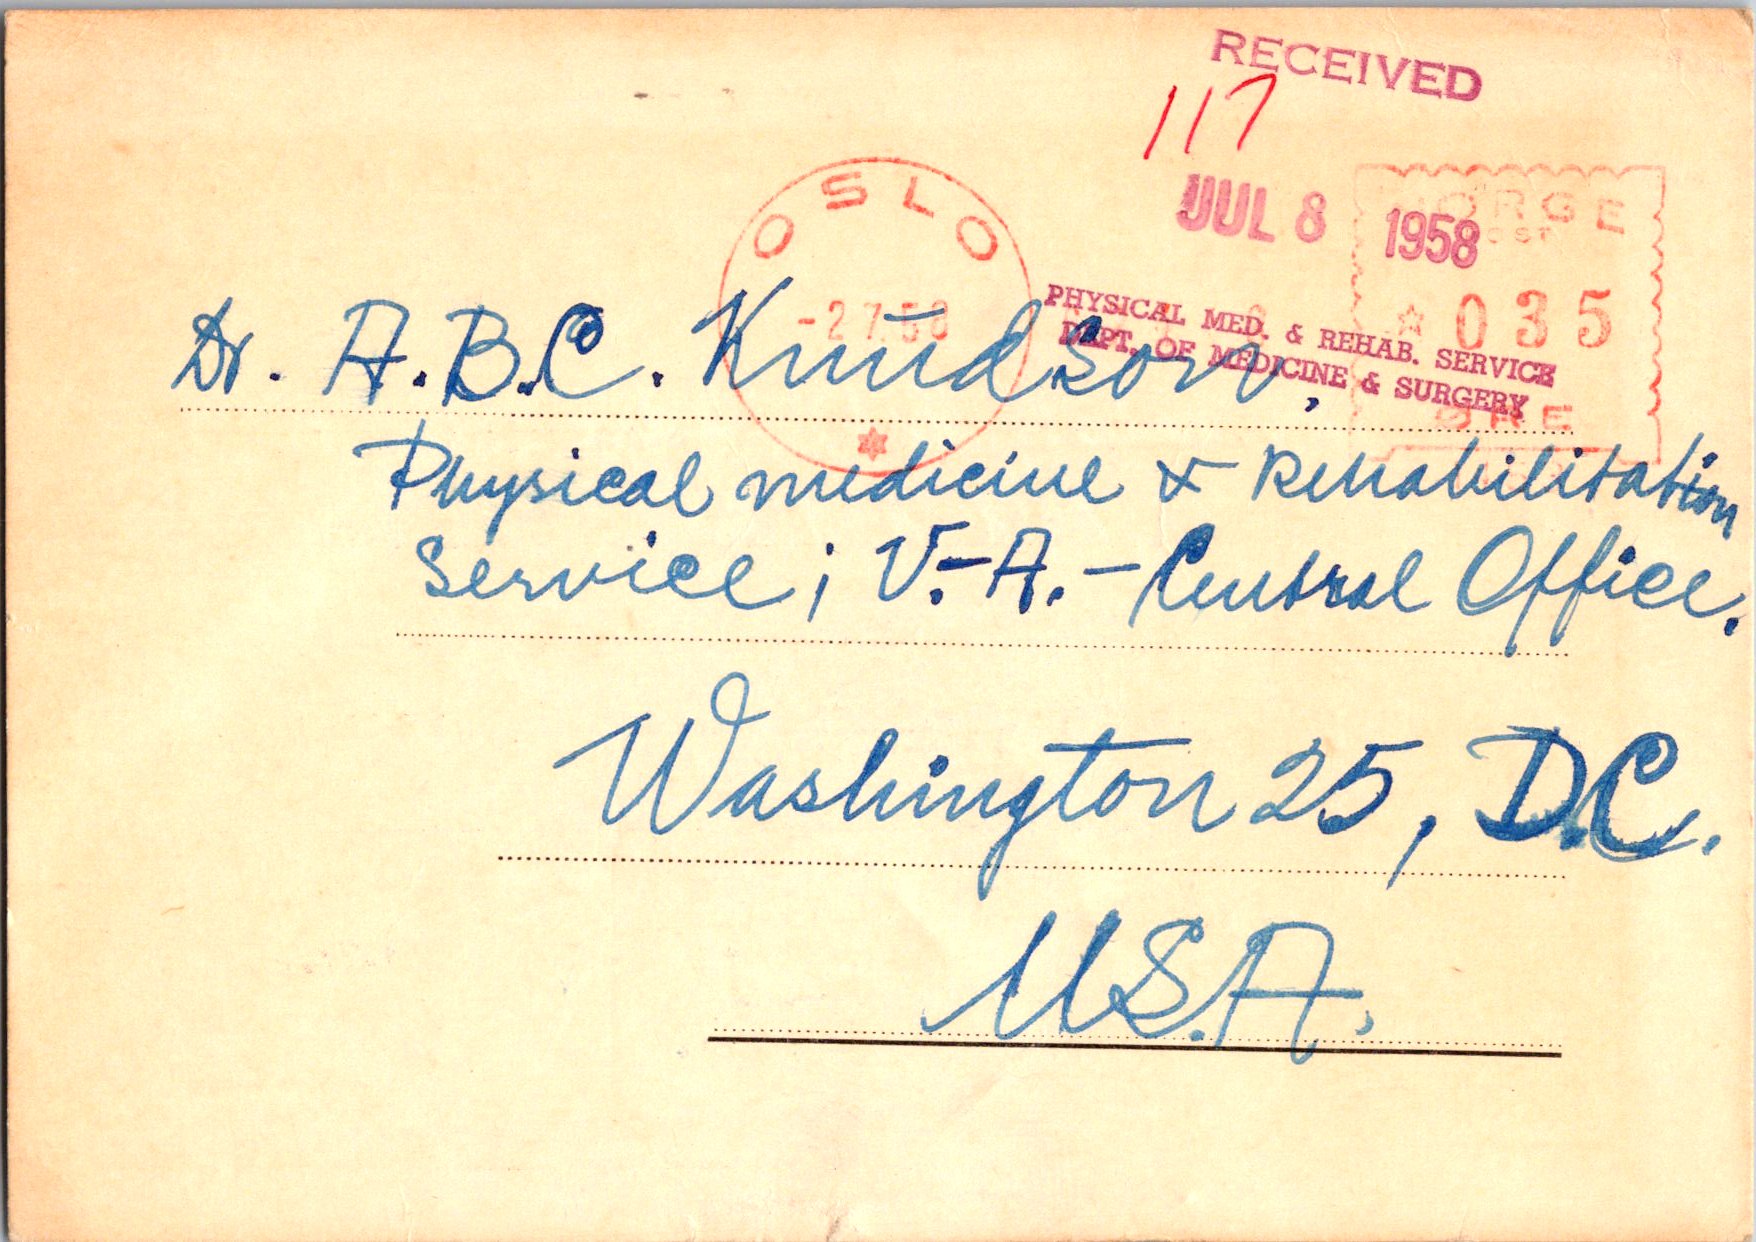 RECEIVED
117
JUL 8 1958
PHYSICAL MED. & REHAB. SERVICE
DEPT. OF MEDICINE & SURGERY
OSLO
-2 7.58
NORGE
POST
035
ØRE
Dr. A.B.C. Knudson,
Physical medicine & Rehabilitation
Service; V.-A.- Central Office.
Washington 25, D.C.
U.S.A.